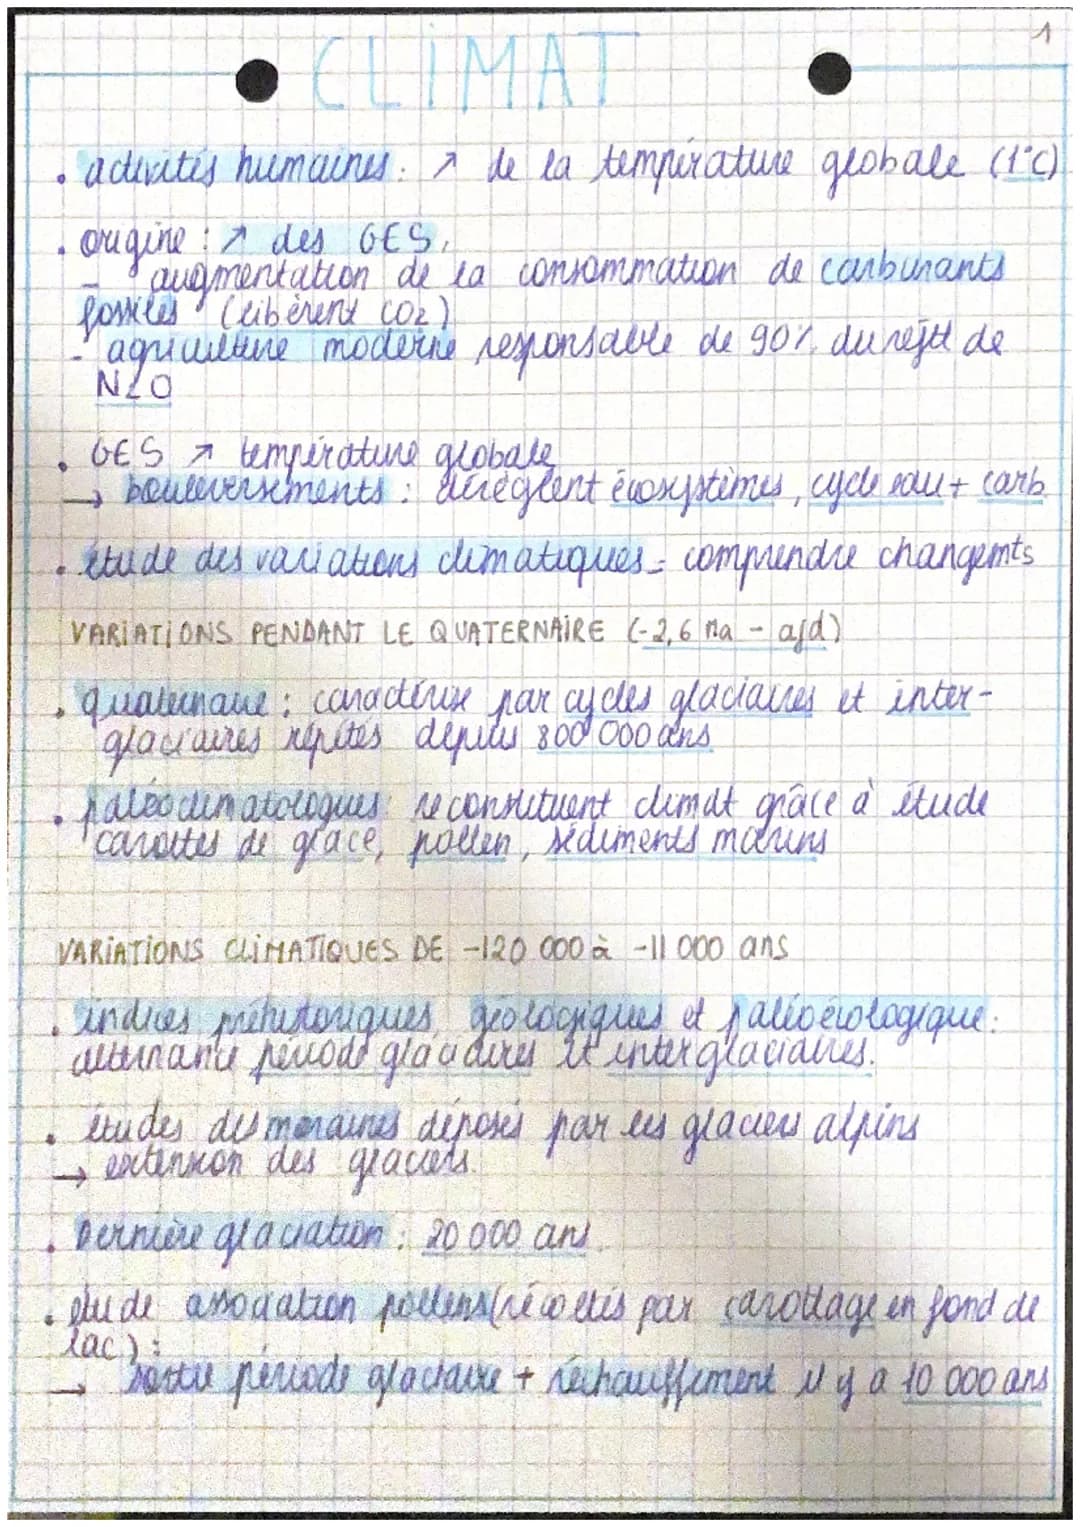 1
CLIMAT
• activités humaines : ↗ de la température globale (1°C)
• origine : ↗ des GES,
- augmentation de la consommation de carburants
fossiles (libèrent CO2)
- agriculture moderne responsable de 90% du rejet de
N2O
• GES ↗ température globale
→ bouleversements : dérèglent écosystèmes, cycle eau + carb
• étude des variations climatiques = comprendre changemts
VARIATIONS PENDANT LE QUATERNAIRE (-2,6 Ma - ajd)
• quaternaire : caractérisé par cycles glaciaires et inter-
glaciaires répétés depuis 800 000 ans
• paléoclimatologues reconstituent climat grâce à étude
carottes de glace, pollen, sédiments marins
VARIATIONS CLIMATIQUES DE -120 000 à -11 000 ans
• indices préhistoriques, géologiques et paléoécologique :
alternance période glaciaires et interglaciaires.
• études des moraines déposés par les glaciers alpins
→ extension des glaciers.
• Dernière glaciation : 20 000 ans.
• étude association pollens (récoltés par carottage en fond de
lac) :
→ sortie période glaciaire + réchauffement il y a 10 000 ans